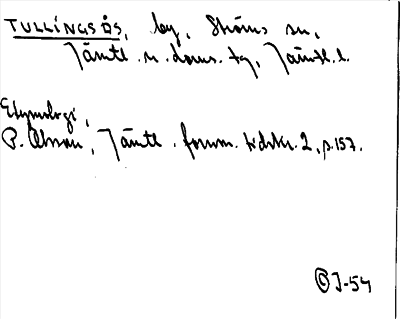 TULLINGSÅS, by, Ströms sn,
Jämtl. n. doms. tg, Jämtl. l.
Etymologi,
P. Olsson, Jämtl. fornm. tidskr. 2, p. 157.
© J-54